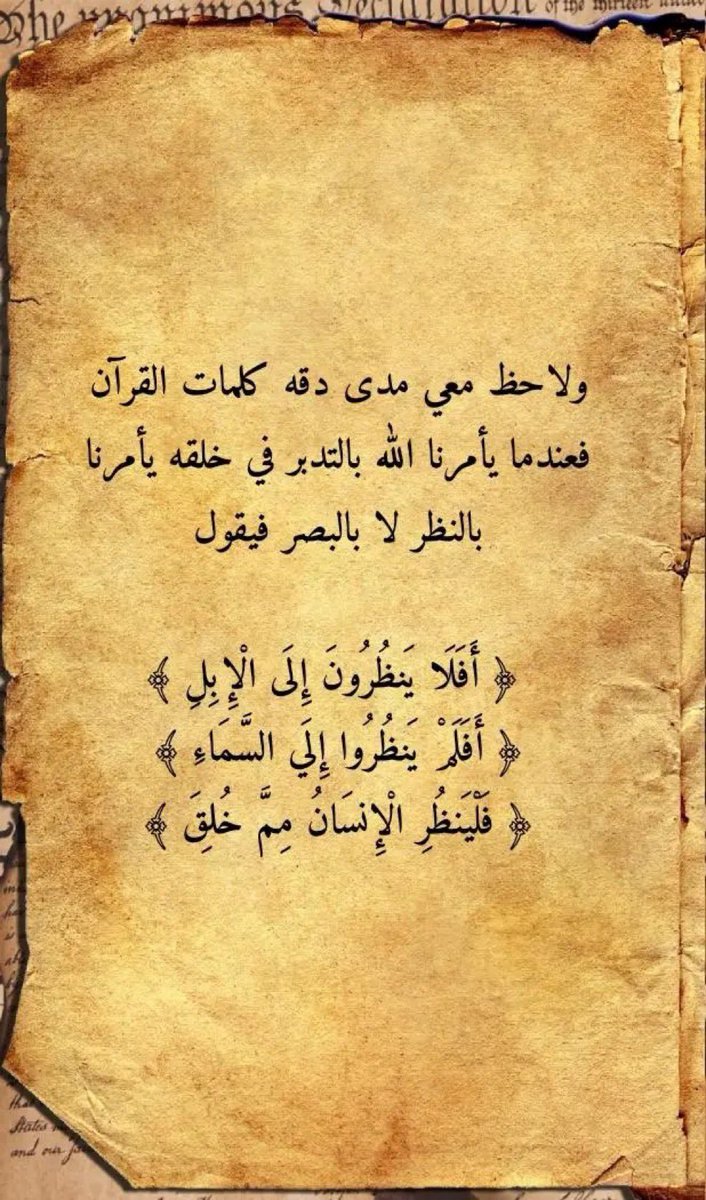 The unanimous Declaration of the thirteen united
ولاحظ معي مدى دقه كلمات القرآن
فعندما يأمرنا الله بالتدبر في خلقه يأمرنا
بالنظر لا بالبصر فيقول
﴿ أَفَلَا يَنظُرُونَ إِلَى الْإِبِلِ ﴾
﴿ أَفَلَمْ يَنظُرُوا إِلَي السَّمَاءِ ﴾
﴿ فَلْيَنظُرِ الْإِنسَانُ مِمَّ خُلِقَ ﴾
that
States
and our